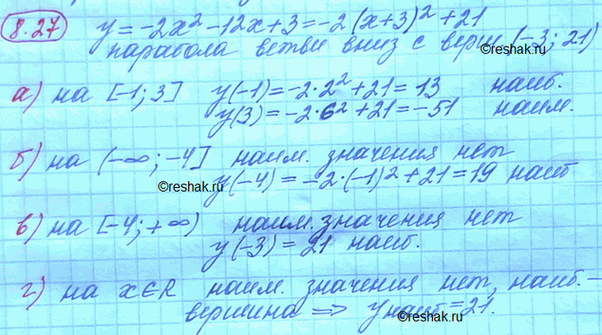 8.27 y = -2x² - 12x + 3 = -2(x+3)² + 21
парабола ветви вниз с верш (-3; 21)
©reshak.ru
а) на [-1; 3] y(-1) = -2·2² + 21 = 13 наиб.
y(3) = -2·6² + 21 = -51 наим.
б) на (-∞; -4] наим. значения нет
©reshak.ru y(-4) = -2·(-1)² + 21 = 19 наиб
в) на [-4; +∞) наим. значения нет
y(-3) = 21 наиб.
г) на x∈R наим. значения нет, наиб. -
вершина ⇒ y наиб = 21.
©reshak.ru